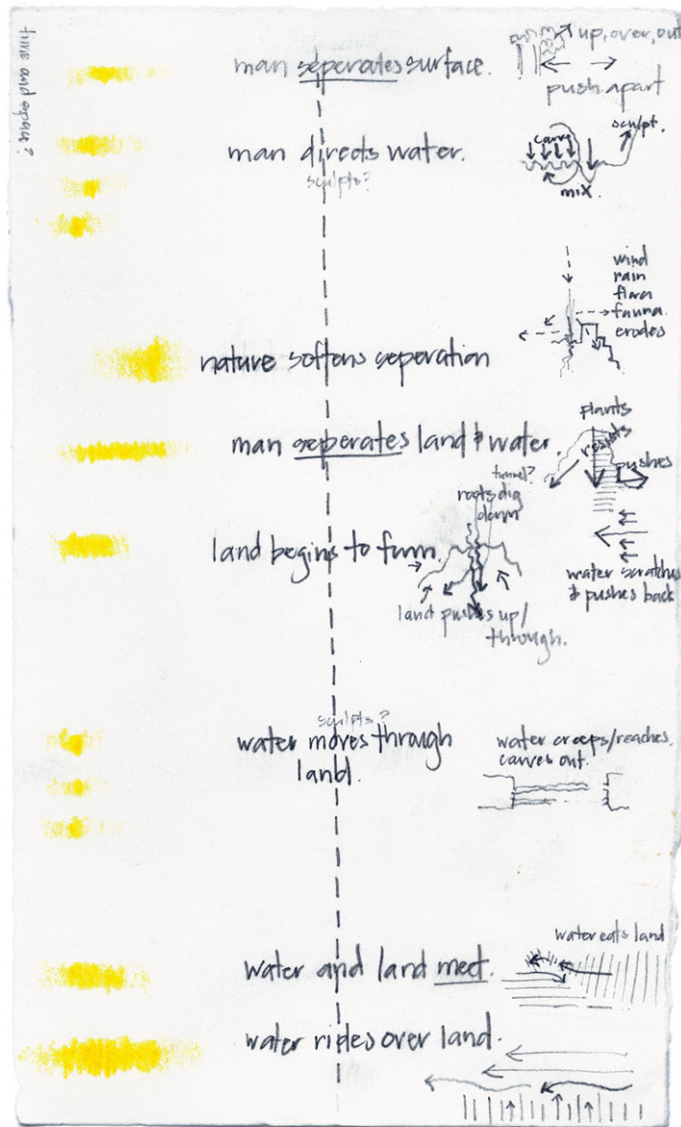 time and space?
man seperates surface.
up, over, out
push apart
man directs water.
sculpts?
carve
sculpt.
mix
wind
rain
flora
fauna
erodes
nature softens seperation
man seperates land & water.
plants
resists
pushes
water scratches
& pushes back
land begins to form.
tunnel?
roots dig
down
land pushes up/
through.
sculpts?
water moves through
land.
water creeps/reaches,
carves out.
water and land meet.
water eats land
water rides over land.